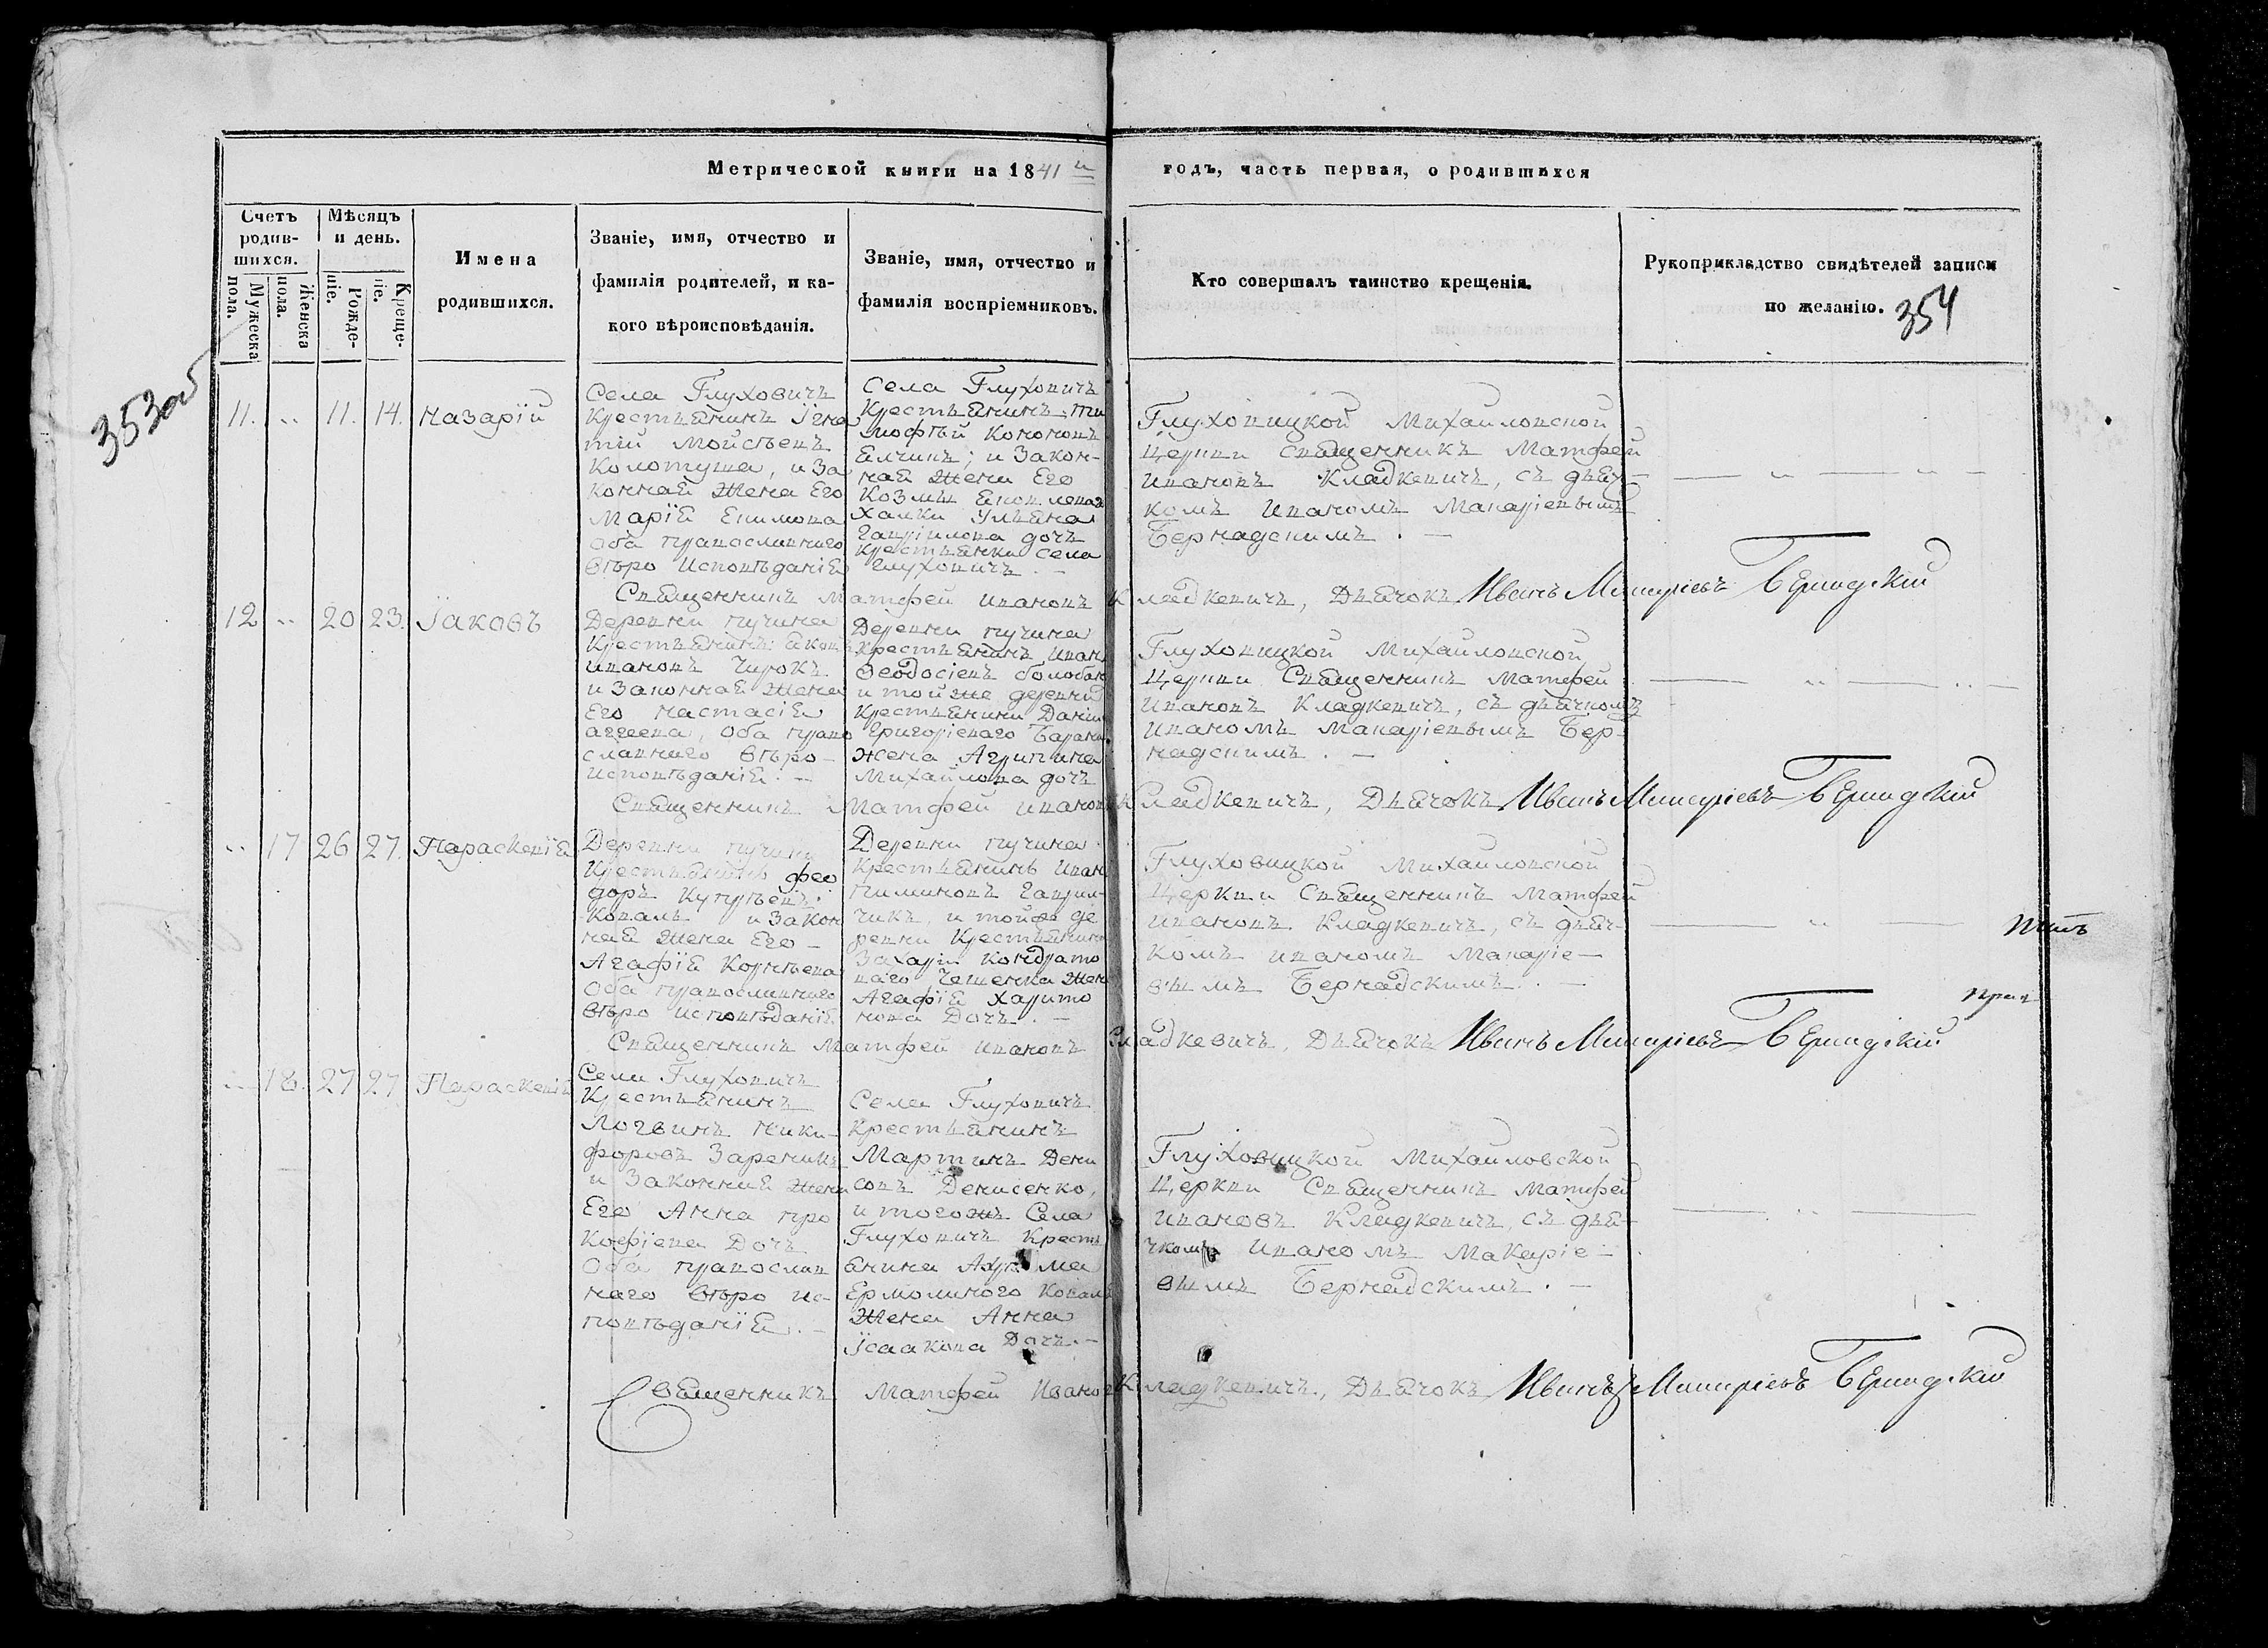 Метрической книги на 1841 й
годъ, часть первая, о родившихся
Счетъ родив-шихся.
Мужеска пола.
Женска пола.
Мѣсяцъ и день.
Рожде-ніе.
Креще-ніе.
Имена
родившихся.
Званіе, имя, отчество и
фамилія родителей, и ка-
кого вѣроисповѣданія.
Званіе, имя, отчество и
фамилія воспріемниковъ.
Кто совершалъ таинство крещенія.
Рукоприкладство свидѣтелей записи
по желанію.
354
353об
11. 11. 14. Назарій
Села Глуховичъ
Крестьянинъ Ігна
тій Мойсѣевъ
Колотуша, и За
конная Жена Его
Марія
оба православнаго
вѣро Исповѣданія
Села Глуховичъ
Крестьянинъ Ти
мофѣй Кононовъ
и Закон-
ная Жена Его
Гавріилова дочь
крестьянки села
Глуховичъ. —
Глуховицкой Михайловской
Церкви Священникъ Матфей
Ивановъ Кладкевичъ, съ дьяч-
комъ Иваномъ Макаріевымъ
Бернадскимъ. —
Священникъ Матфей Ивановъ Кладкевичъ, Дьячокъ Иванъ Макаріевъ Бернадскій
12 20 23. Іаковъ
Деревни Пучина
Крестьянинъ
Ивановъ Чирокъ
и Законная Жена
Его Настасія
Аггеева, Оба право
славнаго вѣро-
исповѣданія. —
Деревни Пучина
Крестьянинъ Иван
Ѳеодосіевъ
и той же деревни
Крестьянина Дании
Григоріеваго
жена Агрипина
Михайлова дочь
Глуховицкой Михайловской
Церкви Священникъ Матфей
Ивановъ Кладкевичъ, съ дьячкомъ
Иваномъ Макаріевымъ Бер-
надскимъ. —
Священникъ Матфей Ивановъ Кладкевичъ, Дьячокъ Иванъ Макаріевъ Бернадскій
17 26 27. Параскевія
Деревни Пучина
Крестьянинъ Фео
доръ
Коваль и Закон
ная Жена Его —
Агафія Корнѣева
Оба православнаго
вѣро исповѣданія.
Деревни Пучина
Крестьянинъ Иван
и той же де
ревни Крестьянина
Захарія Кондрато
ваго Жена
Агафія Харито
нова Дочь. —
Глуховицкой Михайловской
Церкви Священникъ Матфей
Ивановъ Кладкевичъ, съ дьяч-
комъ Иваномъ Макаріе—
вымъ Бернадскимъ. —
Священникъ Матфей Ивановъ Кладкевичъ, Дьячокъ Иванъ Макаріевъ Бернадскій
18. 27 27 Параскевія
Села Глуховичъ
Крестьянинъ
Логвинъ Ники-
форовъ
и Законная Жена
Его Анна Про
кофіева Дочь
Оба православ
наго вѣро ис-
повѣданія. —
Села Глуховичъ
Крестьянинъ
Мартинъ Дени
совъ Денисенко,
и того жъ Села
Глуховичъ Кресть
янина
Ермолиного Коваля
Жена Анна
Ісаакова Дочь. —
Глуховицкой Михайловской
Церкви Священникъ Матфей
Ивановъ Кладкевичъ, съ дья-
чкомъ Иваномъ Макаріе—
вымъ Бернадскимъ. —
Священникъ Матфей Ивановъ Кладкевичъ, Дьячокъ Иванъ Макаріевъ Бернадскій